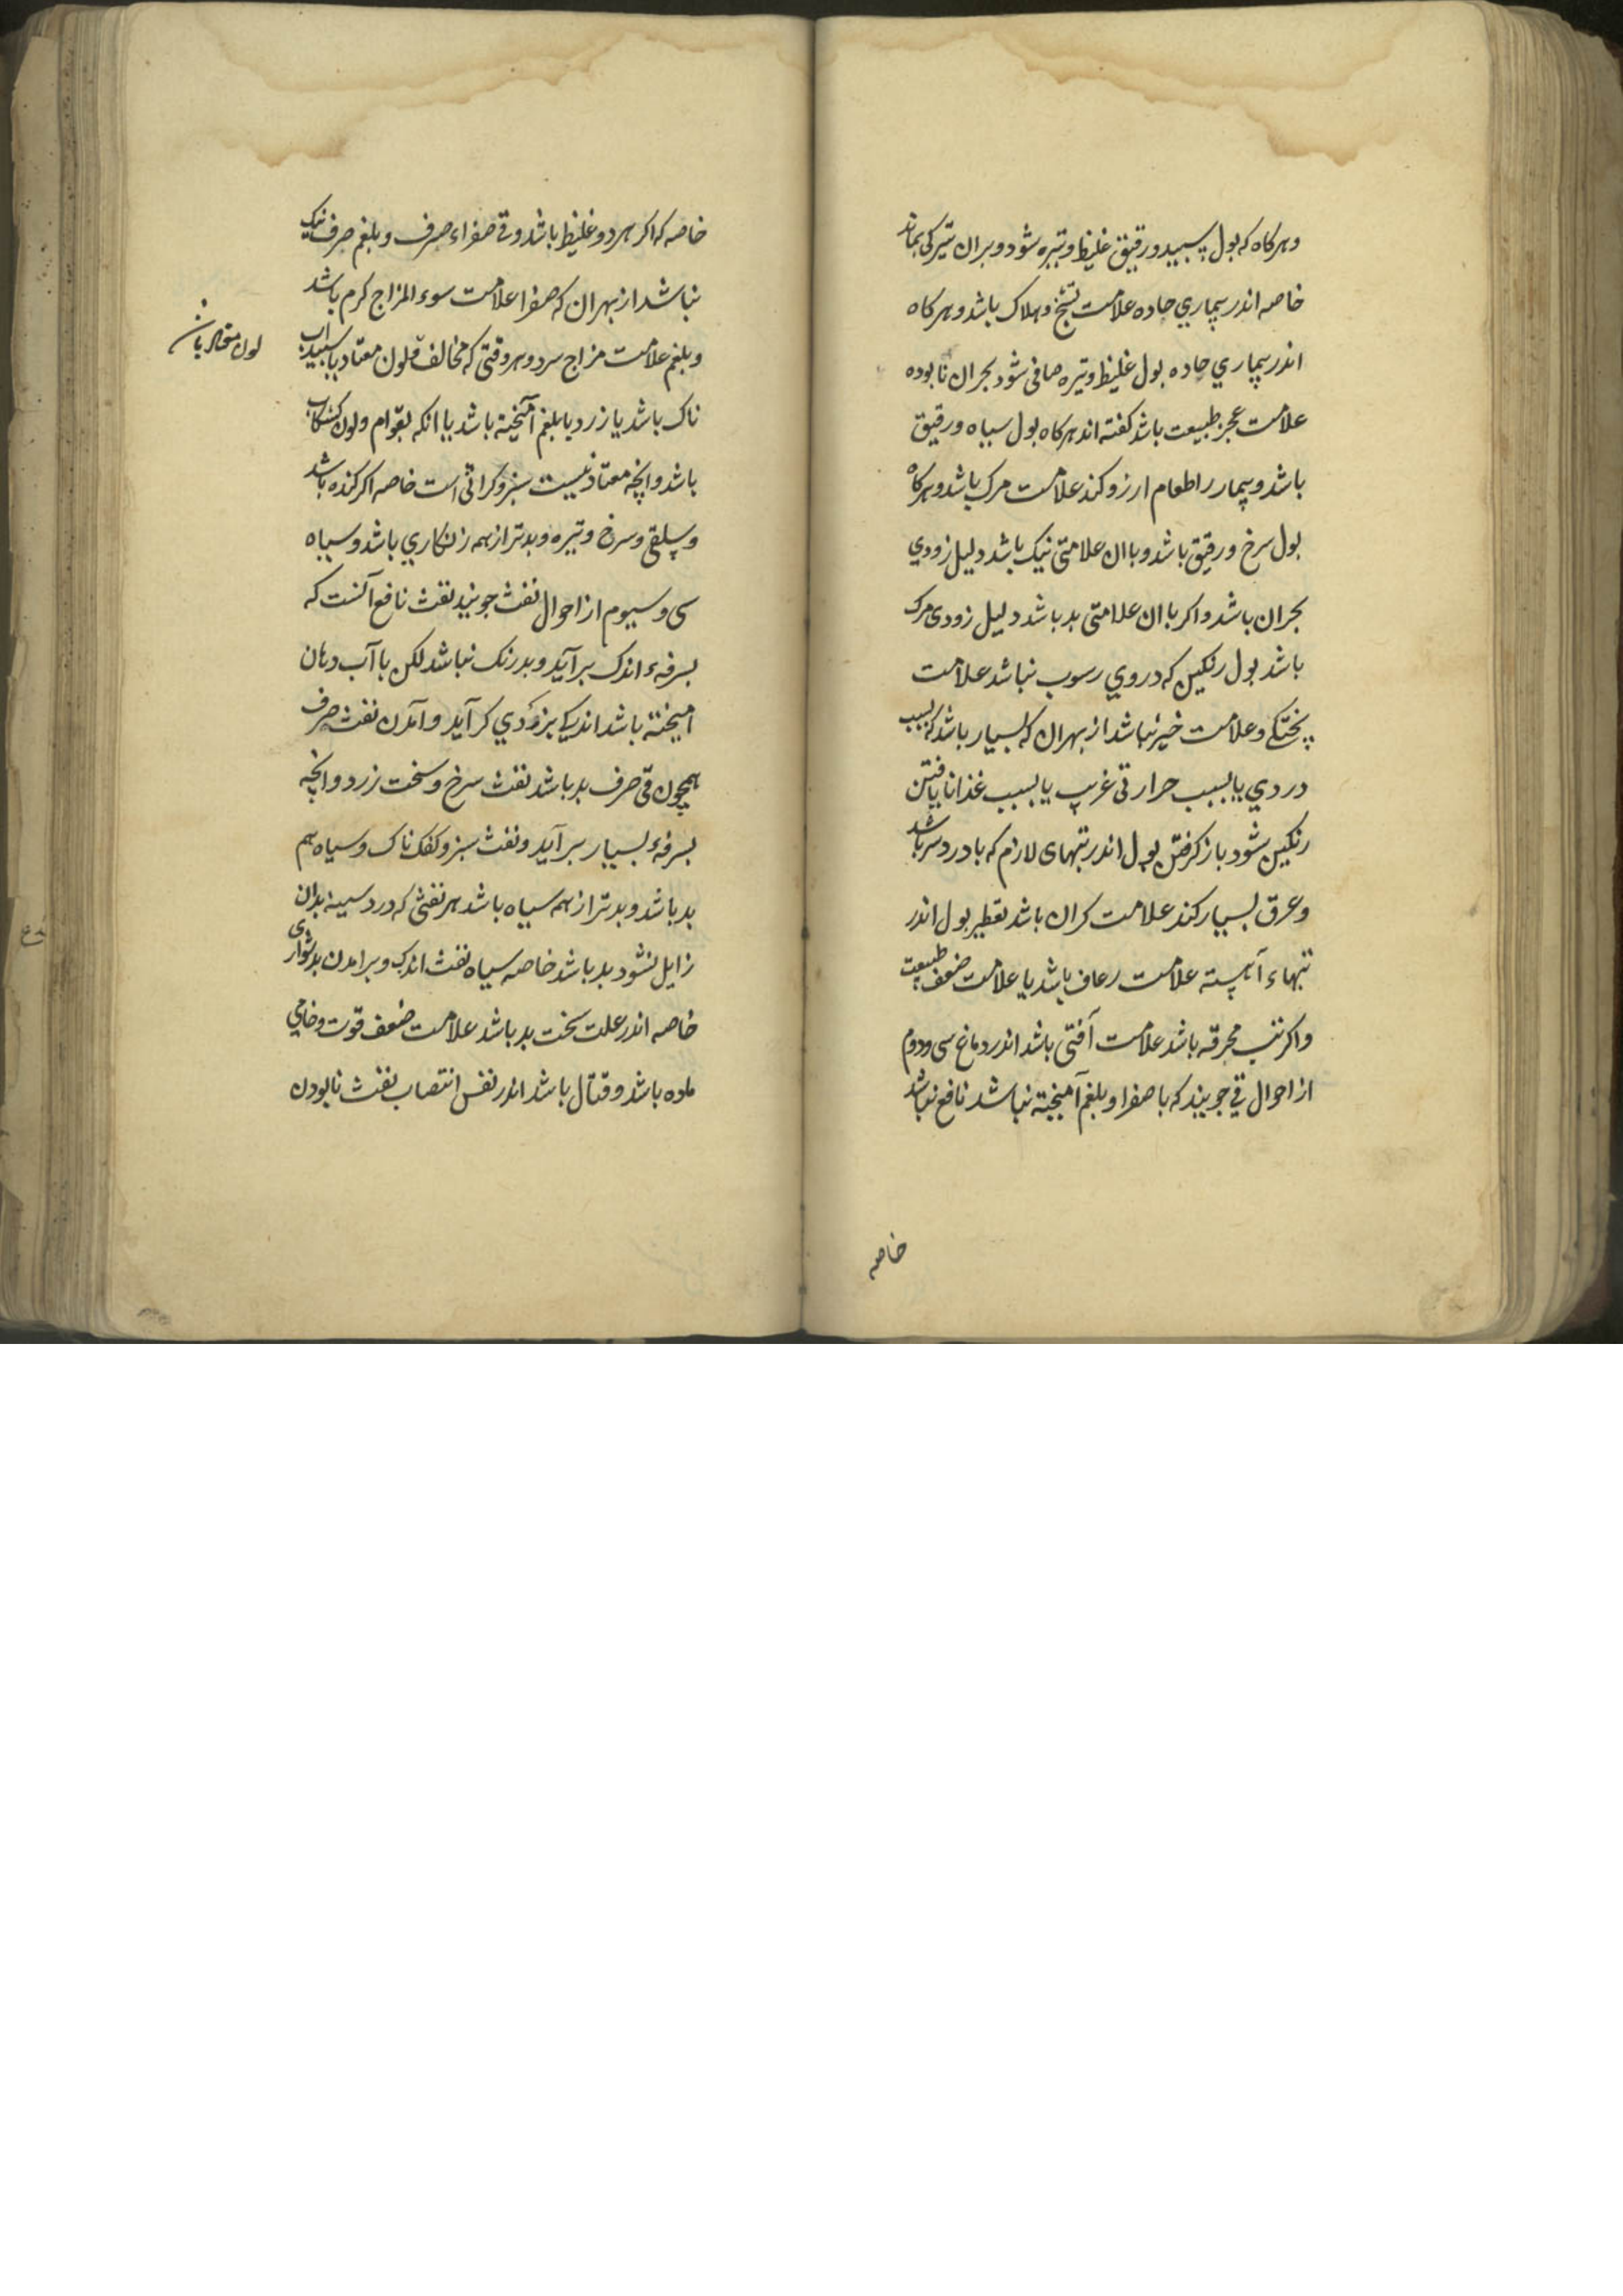 وهرکاه که بول سپید ورقیق غلیظ وتیره شود وبران تیرکی بماند
خاصه اندر بیماری حاده علامت تشنج وهلاک باشد وهرکاه
اندر بیماری حاده بول غلیظ وتیره صافی شود بحران نابوده
علامت عجز طبیعت باشد کفته اند هرکاه بول سیاه ورقیق
باشد وبیمار را طعام ارزو کند علامت مرک باشد وهرکاه
بول سرخ ورقیق باشد وباان علامتی نیک باشد دلیل زودی
بحران باشد واکر باان علامتی بد باشد دلیل زودی مرک
باشد بول رنکین که در وی رسوب نباشد علامت
پختکی وعلامت خیر نباشد از بهران که بسیار باشد که بسبب
دردی یا بسبب حرارتی غریب یا بسبب غذا نایافتن
رنکین شود باز کرفتن بول اندر تبهای لازم که با درد سر باشد
وعرق بسیار کند علامت کران باشد تقطیر بول اندر
تبهاء آهسته علامت رعاف باشد یا علامت ضعف طبیعت
واکر تب محرقه باشد علامت آفتی باشد اندر دماغ سی ودوم
از احوال قی جویند که با صفرا وبلغم آمیخته نباشد نافع نباشد
خاصه
خاصه که اکر هر دو غلیظ باشد وقی صفراء صرف وبلغم صرف نیک
نباشد از بهران که صفرا علامت سوء المزاج کرم باشد
وبلغم علامت مزاج سرد وهر وقتی که مخالف لون معتاد یا سپیداب
ناک باشد یا زرد یا بلغم آمیخته باشد یا انکه بقوام ولون کشکاب
باشد وانچه معتاد نیست سبز وکراثی است خاصه اکر کنده باشد
وسلقی وسرخ وتیره وبدتر از همه زنکاری باشد وسیاه
سی وسیوم از احوال نفث جویند نفث نافع آنست که
بسرفهء اندک برآید وبدرنک نباشد لکن با آب دهان
امیخته باشد اندکی بزودی کر آید وآمدن نفث صرف
همچون قی صرف بد باشد نفث سرخ وسخت زرد وانچه
بسرفهء بسیار برآید ونفث سبز وکفک ناک وسیاه هم
بد باشد وبدتر از همه سیاه باشد هر نفثی که درد سینه بدان
زایل نشود بد باشد خاصه سیاه نفث اندک وبرامدن بدشواری
خاصه اندر علت سخت بد باشد علامت ضعف قوت وخامی
ماده باشد وقتال باشد اندر نفس انتصاب نفث نابودن